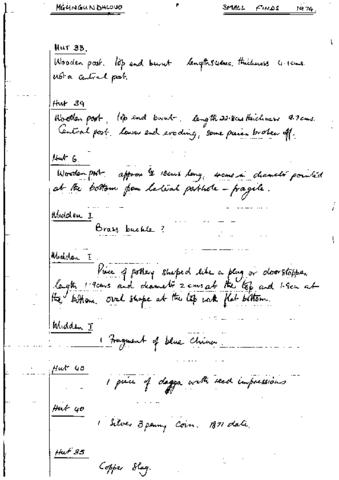 MGUNGUNDLOVU SMALL FINDS 1974.
Hut 33.
Wooden post. Top end burnt length cms. thickness 4.1cms.
Not a central post.
Hut 39
Wooden post, top end burnt. length 22.8cms thickness 9.7cms.
Central post. lower end eroding, some pieces broken off.
Hut 6
Wooden post approx 18cms long, in diameter pointed
at the bottom from lateral posthole - fragile.
Midden I
Brass buckle?
Midden I
Piece of pottery shaped like a plug or doorstopper
length 1.9cms and diameter 2 cms at the top and 1.5cm at
the bottom. oval shape at the top with flat bottom.
Midden I
1 Fragment of blue China.
Hut 40
1 piece of dagga with reed impressions
Hut 40
1 Silver 3 penny coin. 1871 date.
Hut 35
Copper Slag.